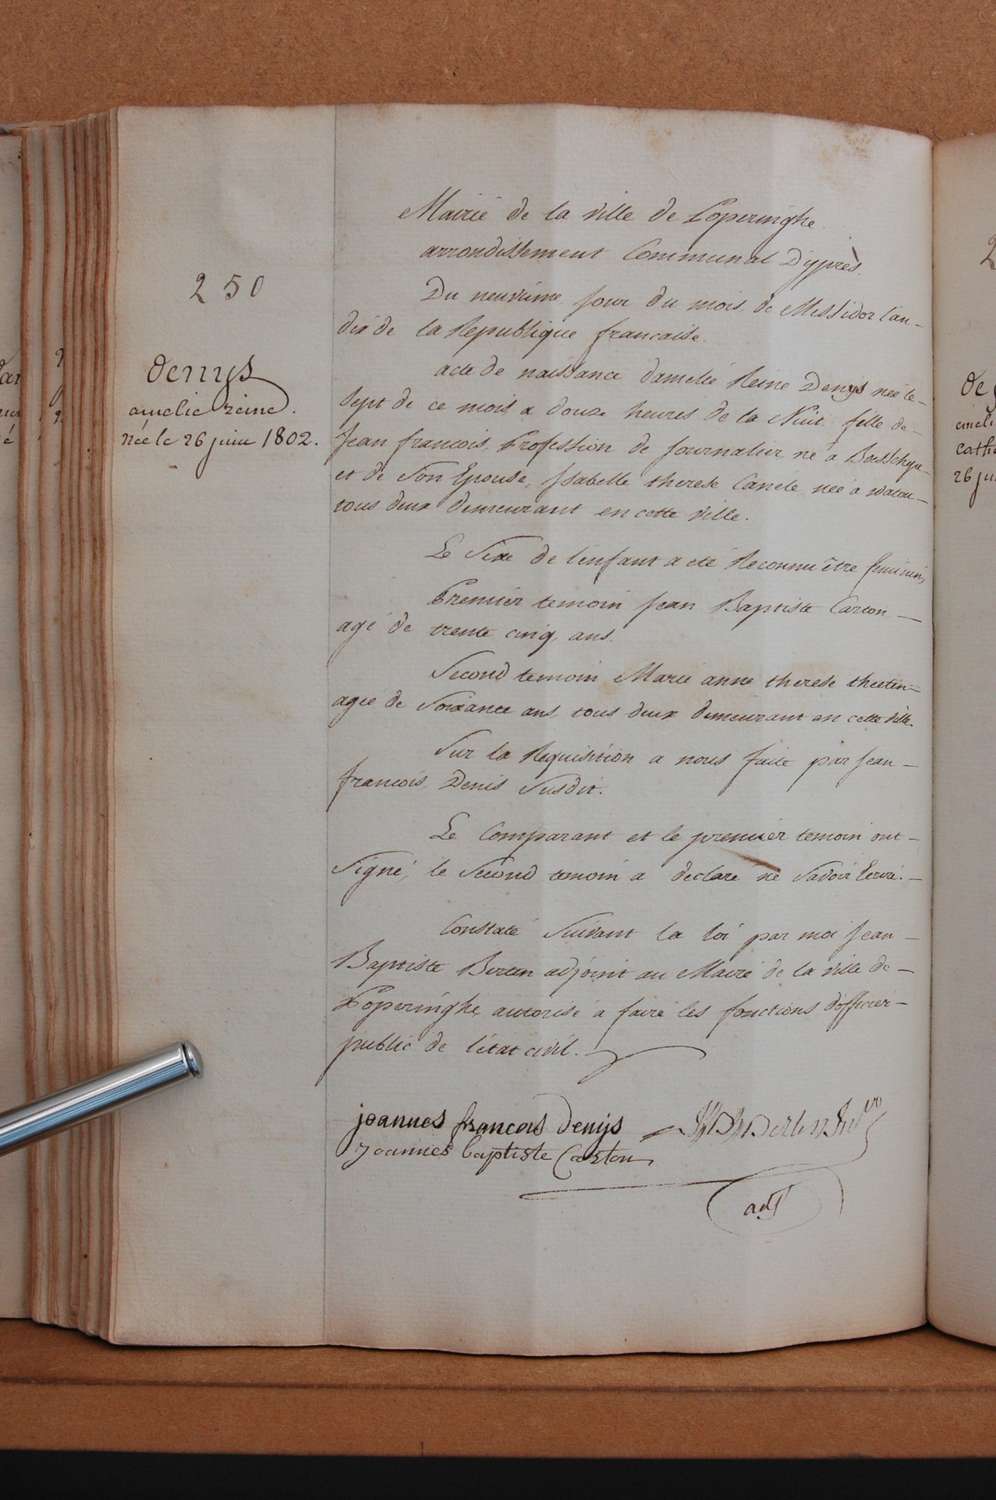 250
Denys
amelie reine.
née le 26 juin 1802.
Mairie de la ville de Poperinghe
arrondissement Communal D'yprès.
Du neuvieme jour du mois de Messidor l'an
dix de la Republique francaise.
acte de naissance d'amelie Reine Denys née le
sept de ce mois a douze heures de la Nuit fille de
Jean francois, Profession de journalier né à
et de son Epouse, Isabelle therese Canele née à watou
tous deux demeurant en cette ville.
Le Sixe de l'enfant a été Reconnu être feminin,
Premier temoin Jean Baptiste Carton
agé de trente cinq ans.
Second temoin Marie anne therese
agée de Soixante ans, tous deux demeurant en cette ville.
Sur la Requisition a nous faite par Jean
francois Denis Susdit.
Le Comparant et le premier temoin ont
Signé, le Second temoin a declaré ne Savoir Ecrire.
Constaté Suivant la loi par moi Jean
Baptiste adjoint au Maire de la ville de
Poperinghe autorisé a faire les fonctions d'officier
public de l'état civil.
joannes francois Denijs
Joannes baptiste Carton
adj
Denys
26 ju